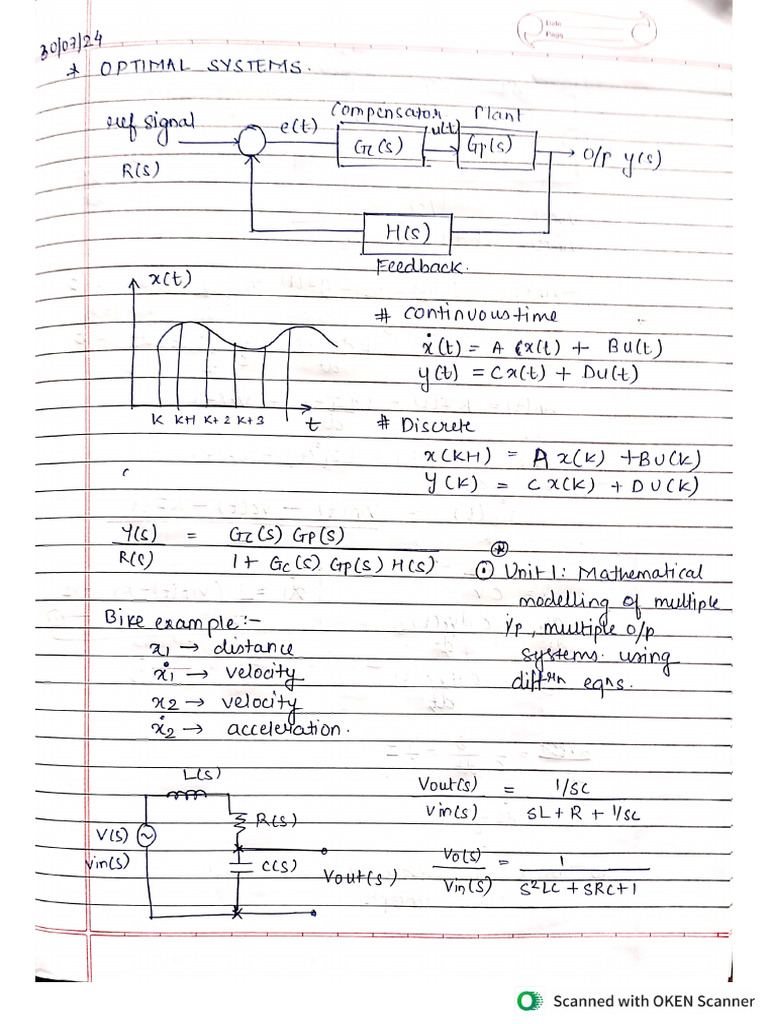 Date
Page
30/07/24
* OPTIMAL SYSTEMS.
Compensator Plant
ref signal e(t) Gc(s) u(t) Gp(s) → O/p y(s)
R(s)
H(s)
Feedback.
x(t)
# continuous time
ẋ(t) = A x(t) + BU(t)
y(t) = Cx(t) + DU(t)
K K+1 K+2 K+3 t
# Discrete
x(K+1) = A x(K) + BU(K)
Y(K) = Cx(K) + DU(K)
Y(s) = Gc(s) Gp(s)
R(s) 1 + Gc(s) Gp(s) H(s)
Unit 1: Mathematical
modelling of multiple
i/p, multiple o/p
systems. using
diffrn eqns.
Bike example:-
x1 → distance
ẋ1 → velocity
x2 → velocity
ẋ2 → acceleration.
L(s)
R(s)
V(s)
Vin(s)
C(s)
Vout(s)
Vout(s) = 1/SC
Vin(s) SL + R + 1/SC
Vo(s) = 1
Vin(s) S²LC + SRC+1
Scanned with OKEN Scanner